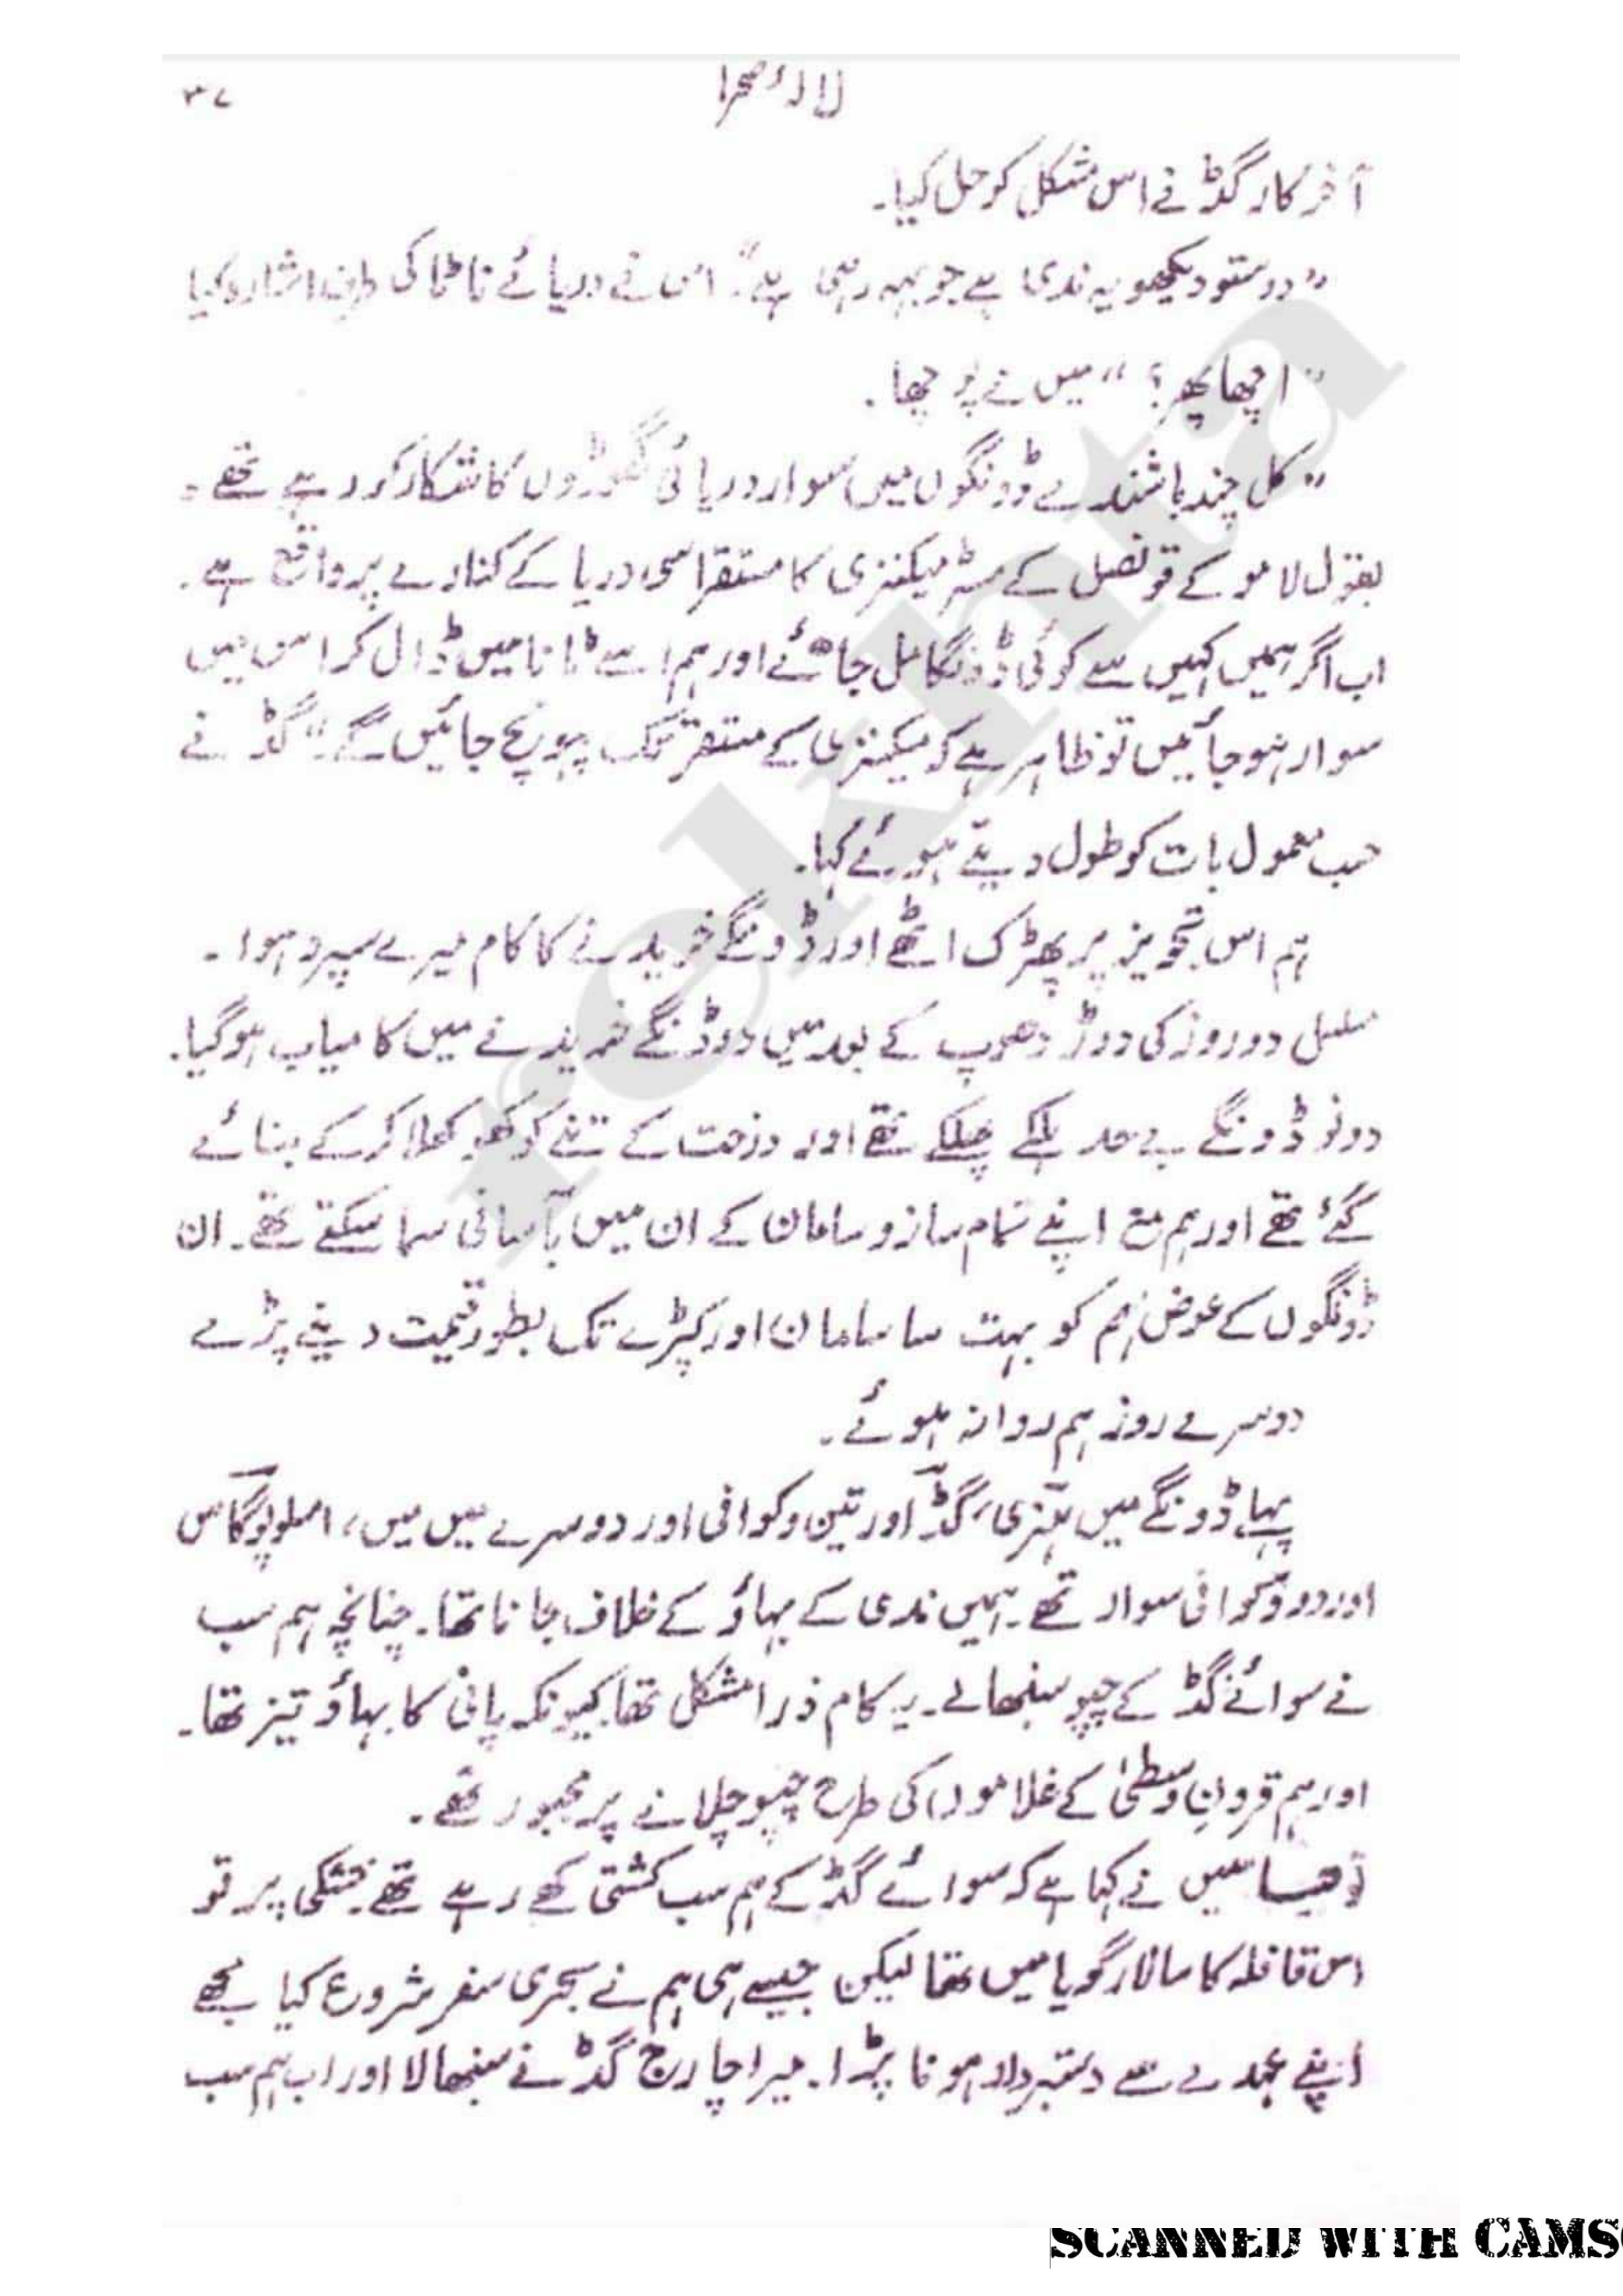 لالۂ صحرا
۳۷
آخر کار گڈ نے اس مشکل کو حل کیا۔
”دوستو دیکھو یہ ندی ہے جو بہہ رہی ہے“۔ اس نے دریائے ٹانا کی طرف اشارہ کیا
”اچھا پھر؟“ میں نے پوچھا۔
”کل چند باشندے ڈونگوں میں سوار دریائی گھوڑوں کا شکار کر رہے تھے۔
بقول لامو کے قونصل کے مسٹر میکنزی کا مستقر اسی دریا کے کنارے پر واقع ہے۔
اب اگر ہمیں کہیں سے کوئی ڈونگا مل جائے اور ہم اسے ٹانا میں ڈال کر اس میں
سوار ہو جائیں تو ظاہر ہے کہ میکنزی کے مستقر تک پہونچ جائیں گے۔“ گڈ نے
حسب معمول بات کو طول دیتے ہوئے کہا۔
ہم اس تجویز پر پھڑک اٹھے اور ڈونگے خریدنے کا کام میرے سپرد ہوا۔
مسلسل دو روز کی دوڑ دھوپ کے بعد میں دو ڈنگے خریدنے میں کامیاب ہو گیا۔
دونو ڈونگے بے حد ہلکے چھلکے تھے اور درخت کے تنے کو کھوکھلا کر کے بنائے
گئے تھے اور ہم مع اپنے تمام ساز و سامان کے ان میں بآسانی سما سکتے تھے۔ ان
ڈونگوں کے عوض ہم کو بہت سا سامان اور کپڑے تک بطور قیمت دینے پڑے
دوسرے روز ہم روانہ ہوئے۔
پہلے ڈونگے میں ہنری، گڈ اور تین وکوافی اور دوسرے میں میں، امسلوپوگاس
اور دو وکوافی سوار تھے۔ ہمیں ندی کے بہاؤ کے خلاف جانا تھا۔ چنانچہ ہم سب
نے سوائے گڈ کے چپو سنبھالے۔ یہ کام ذرا مشکل تھا کیونکہ پانی کا بہاؤ تیز تھا۔
اور ہم قرونِ وسطیٰ کے غلاموں کی طرح چپو چلانے پر مجبور تھے۔
میں نے کہا ہے کہ سوائے گڈ کے ہم سب کشتی کھے رہے تھے۔ خشکی پر تو
اس قافلہ کا سالار گویا میں تھا لیکن جیسے ہی ہم نے بحری سفر شروع کیا مجھے
اپنے عہدے سے دستبردار ہونا پڑا۔ میرا چارج گڈ نے سنبھالا اور اب ہم سب
rekhta
SCANNED WITH CAMS